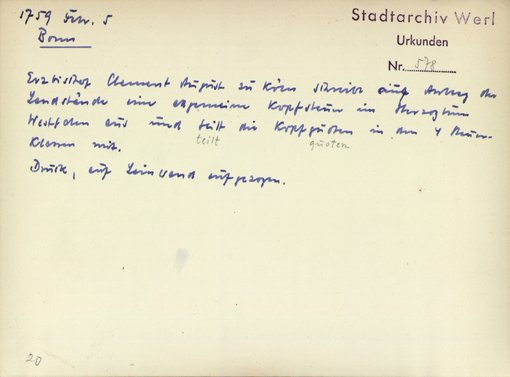 1759 Febr. 5
Bonn
Stadtarchiv Werl
Urkunden
Nr. 578
Erzbischof Clement August zu Köln schreibt auf Antrag der
Landstände eine allgemeine Kopfsteuer im Herzogtum
Westfalen aus und teilt die Kopfquoten in den 4 Steuer-
klassen mit.
teilt quoten
Druck, auf Leinwand aufgezogen.
20